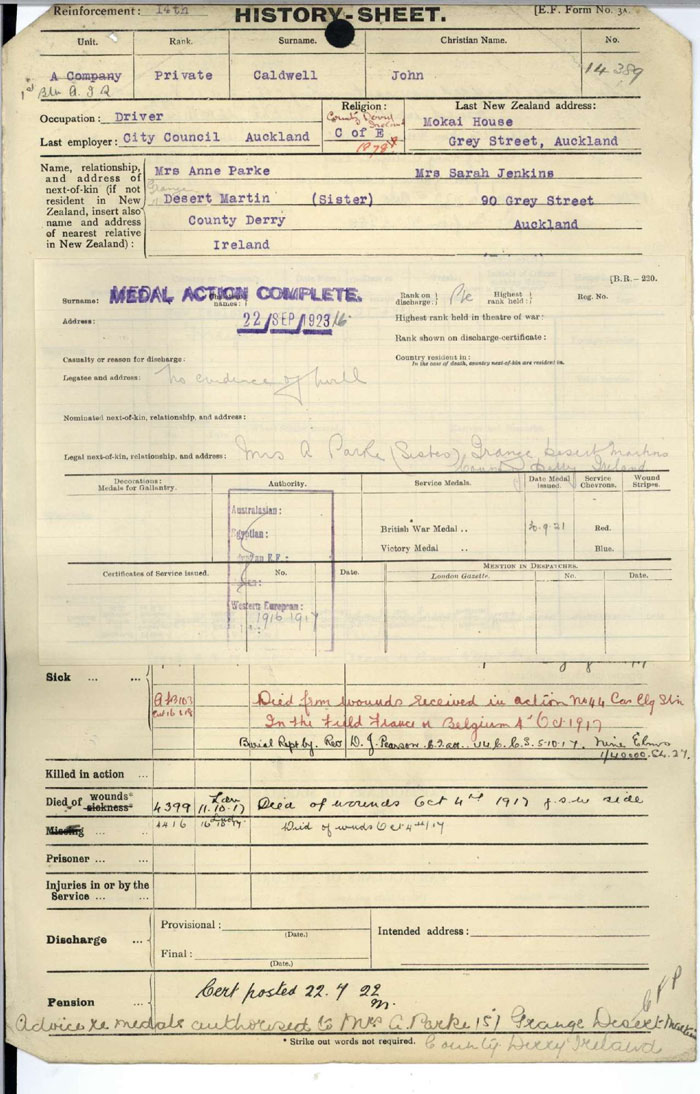 Reinforcement: 14th
HISTORY-SHEET.
[E.F. Form No. 3A.
Unit. Rank. Surname. Christian Name. No.
A Company Private Caldwell John 14389
1st Bln A.I.R
Occupation: Driver
Religion: County Derry Ireland
C of E
Last New Zealand address:
Mokai House
Last employer: City Council Auckland
Grey Street, Auckland
Name, relationship, and address of next-of-kin (if not resident in New Zealand, insert also name and address of nearest relative in New Zealand):
Mrs Anne Parke Mrs Sarah Jenkins
Grange
Desert Martin (Sister) 90 Grey Street
County Derry Auckland
Ireland
[B.R.—230.
Surname: MEDAL ACTION COMPLETE. names:
Rank on discharge: Pte Highest rank held: Reg. No.
Address: 22 SEP 1923
Highest rank held in theatre of war:
Rank shown on discharge-certificate:
Casualty or reason for discharge:
Country resident in:
In the case of death, country next-of-kin are resident in.
Legatee and address: No evidence of will
Nominated next-of-kin, relationship, and address:
Legal next-of-kin, relationship, and address: Mrs A Parke (Sister) Grange Desert Martins
County Derry Ireland
Decorations: Medals for Gallantry. Authority. Service Medals. Date Medal issued. Service Chevrons. Wound Stripes.
Australasian:
Egyptian:
British War Medal .. .9.21 Red.
Victory Medal .. Blue.
Certificates of Service issued. No. Date.
MENTION IN DESPATCHES.
London Gazette. No. Date.
Western European:
1916 1917
Sick ... ...
A.F.B103
Died from wounds received in action No 44 Cas Clg Stn
In the Field France or Belgium 4th Oct 1917
Burial Rept by. Rev D. J. Pearson. 44 C.C.S. 5.10.17. Nine Elms
1/40000. Sh. 27.
Killed in action ...
Died of wounds sickness* 4399 11.10.17 Died of wounds Oct 4th 1917 g.s.w side
Missing ... 4416 Died of wnds Oct 4th/17
Prisoner ... ...
Injuries in or by the Service ... ...
Discharge ...
Provisional:
(Date.)
Intended address:
Final:
(Date.)
Pension ...
Cert posted 22.4 22
m.
C P P
Advice re medals authorised to Mrs A Parke (S) Grange Desert-Martin
* Strike out words not required.
County Derry Ireland